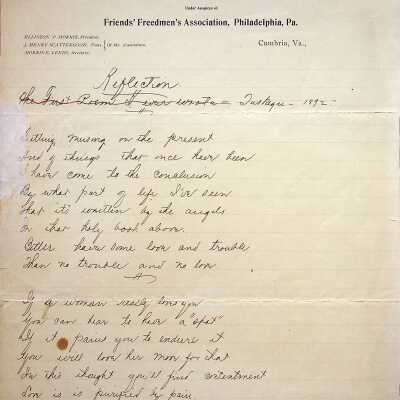 Under Auspices of
Friends' Freedmen's Association, Philadelphia, Pa.
ELLISTON P. MORRIS, President.
J. HENRY SCATTERGOOD, Treas.
Of the Association.
MORRIS E. LEEDS, Secretary.
Cambria, Va.,
Reflection
The First Poem I ever wrote – Tuskegee – 1892 –
Sitting musing on the present
And of things that once have been
I have come to the conclusion
By what part of life I've seen
That it's written by the angels
In that holy book above
Better have some love and trouble
Than no trouble and no love
If a woman really loves you
You can bear to have a "spat"
If it pains you to endure it
You will love her more for that
In this thought you'll find contentment
Love is is purified by pain